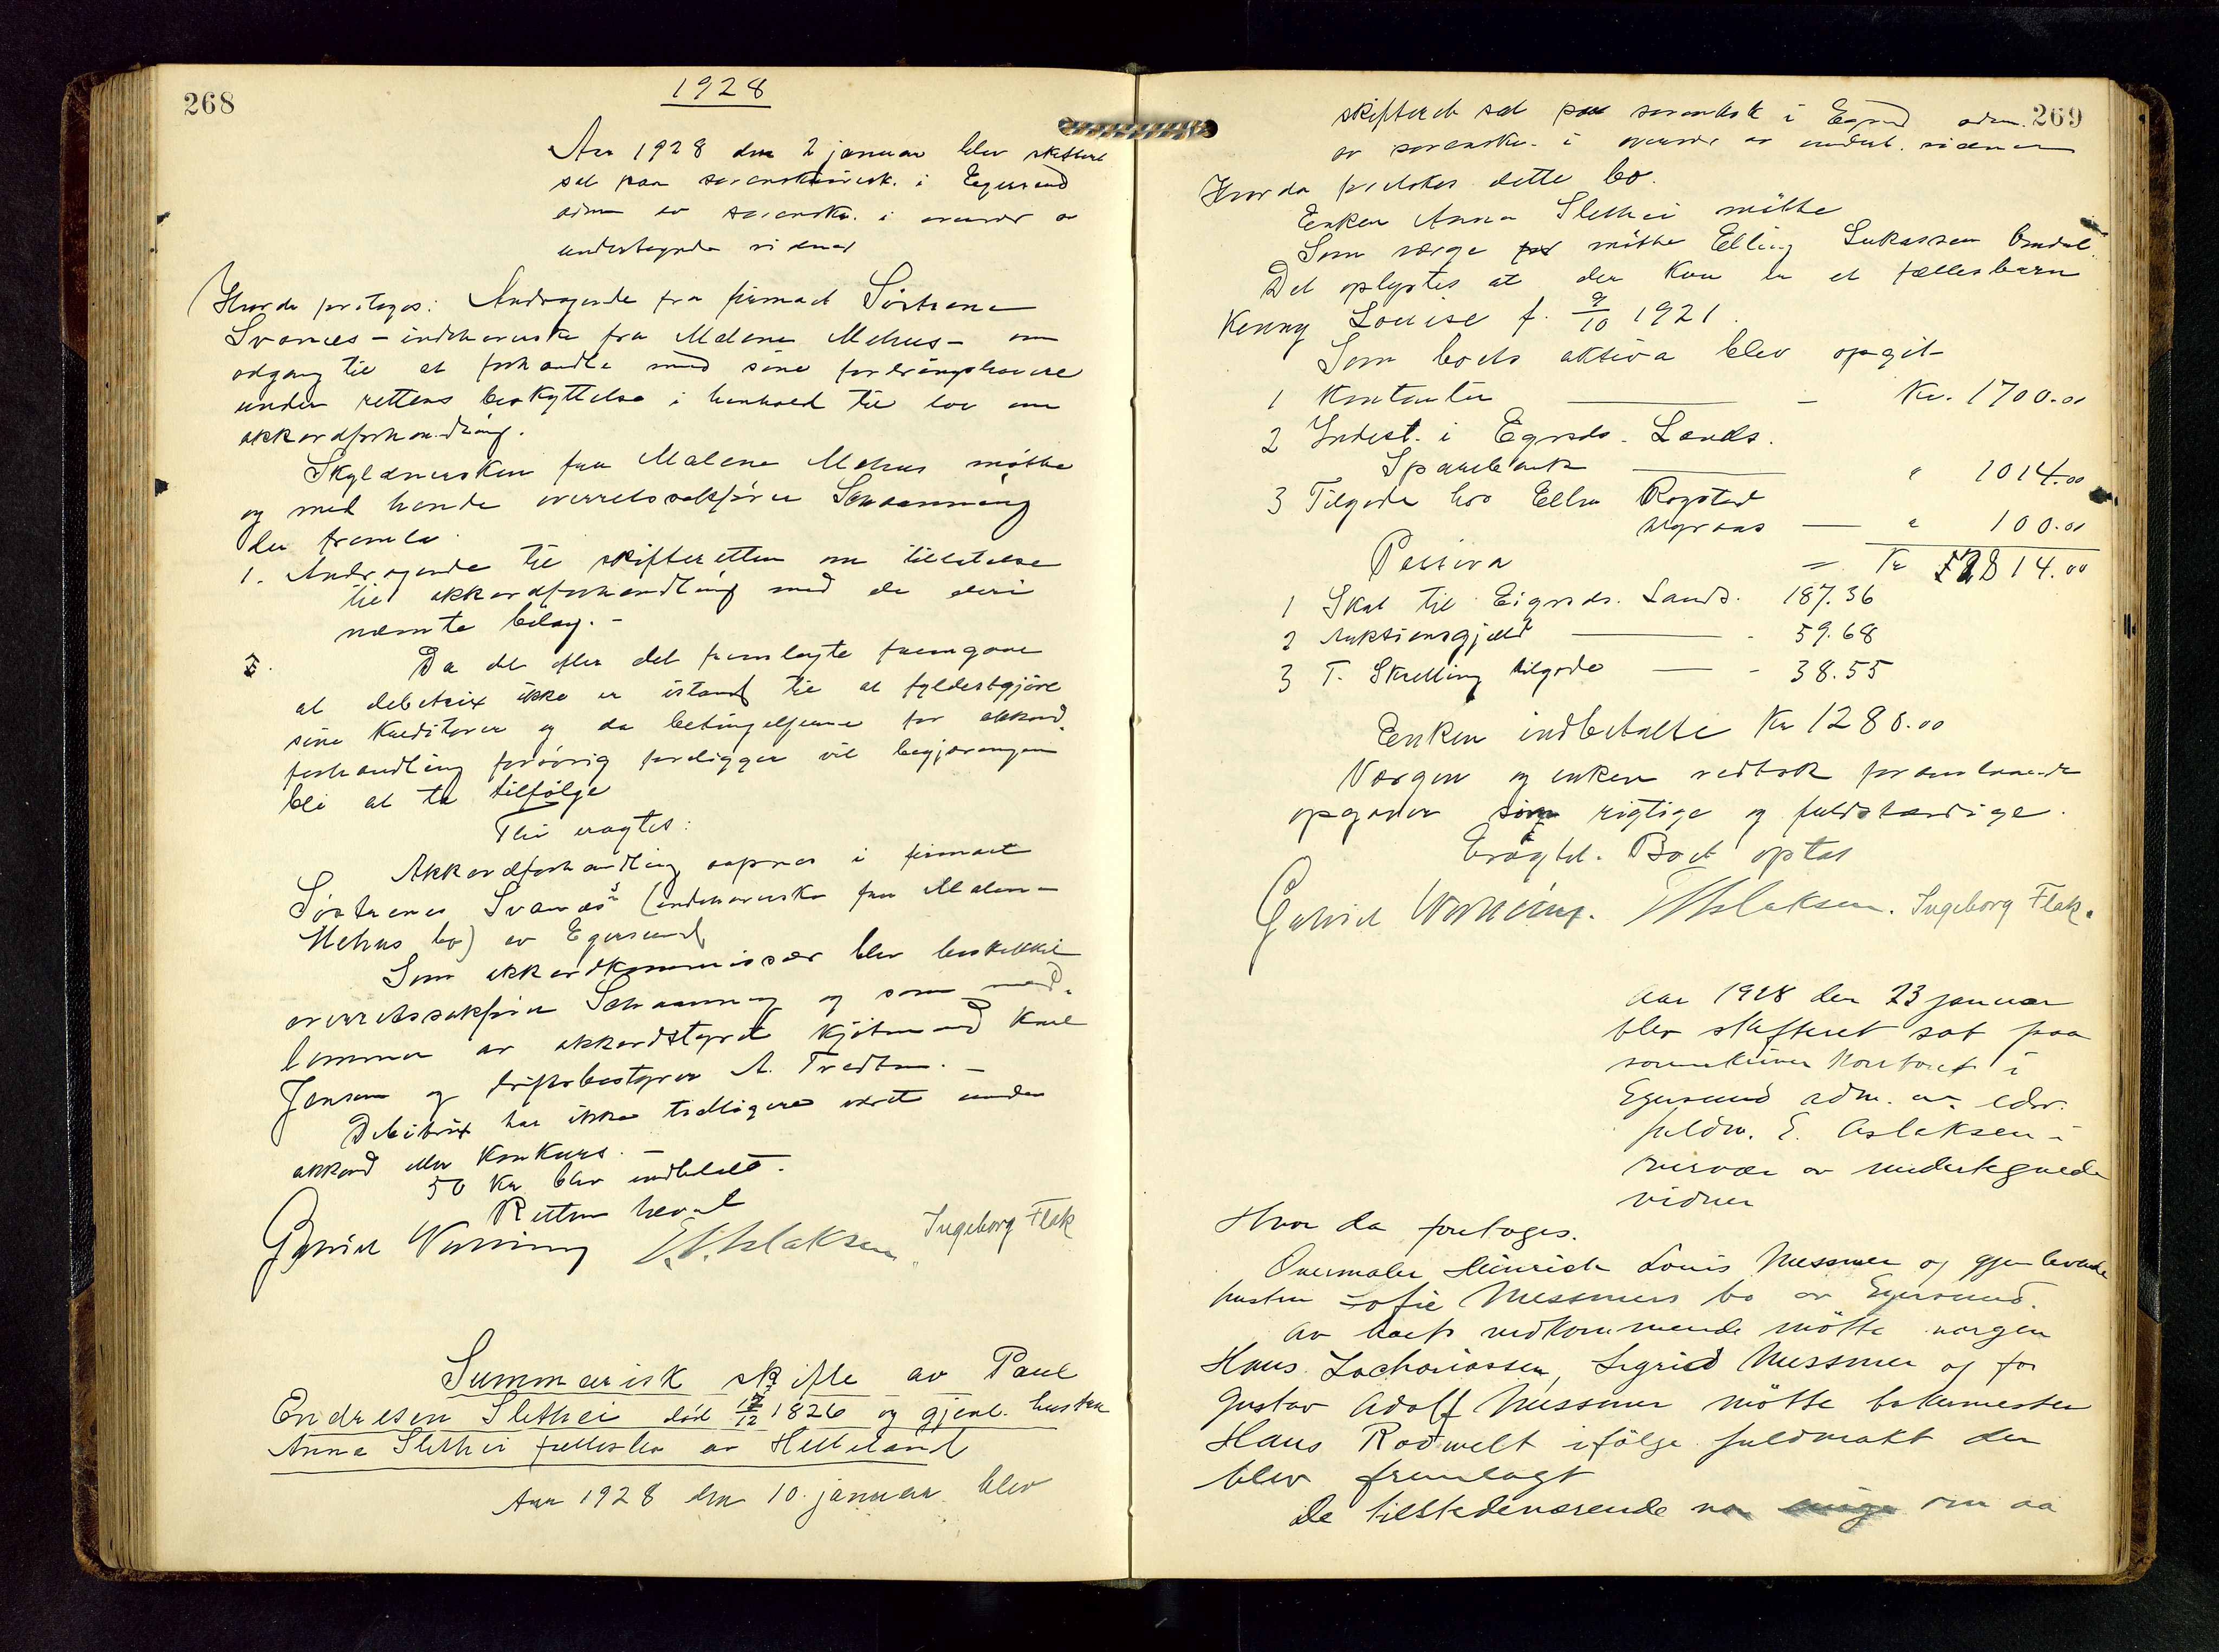 268
1928
Aar 1928 den 2 januar blev skifteret
sat paa sorenskriverk. i Egersund
adm av sorenskr. i overvær av
undertegnede vidner
Hvorda foretoges: Andragende fra firmaet Söstrene
Svanes - indehaverske fru Malene Mehus - om
adgang til at forhandle med sine fordringshavere
under rettens beskyttelse i henhold til lov om
akkordforhandling.
Skyldnersken fru Malene Mehus møtte
og med hende overretssakfører Schaanning
der fremla
1. Andragende til skifteretten om tillatelse
til akkordforhandling med de deri
nævnte bilag. -
Da det efter det fremlagte fremgaar
at debetrix ikke er istand til at fyldestgjöre
sine kreditorer og da betingelserne for akkord
forhandling forövrig foreligger vil begjæringen
bli at ta tilfølge
Thi eragtes:
Akkordforhandling aapnes i firmaet
Söstrenes Svanes (indehaverske fru Malene
Mehus bo) av Egersund
Som akkordkommissær blev beskikket
overretssakfører Schaanning og som med-
lemmer av akkordstyret kjøbmand Karl
Jensen og driftsbestyrer A. Tredten. -
Debitrix har ikke tidligere været under
akkord eller konkurs. -
50 Kr blev indbetalt.
Retten hævet
Gabriel Worning E. Aslaksen Ingeborg Flak
Summarisk skifte av Paul
Endresen Slethei død 12/12 1926 og gjenl. hustru
Anna Slethei fællesbo av Helleland
Aar 1928 den 10. januar blev
269
skifteret sat paa sorenskrk i Egersd adm.
av sorenskr. i overvær av undert. vidner
Hvorda foretokes dette bo.
Enken Anna Slethei møtte
Som værge møtte Elling Lukassen Omdal.
Det oplystes at der kun er et fællesbarn
Kenny Louise f. 9/10 1921.
Som boets aktiva blev opgit
1 Kontanter - Kr. 1700.00
2 Indest. i Egersds. Lands.
Sparebank " 1014.00
3 Tilgode hos Ellen Rogstad
Nygaas " 100.00
Passiva = Kr 2814.00
1 Skat til Eigersds. Lands. 187.36
2 Auktionsgjæld - 59.68
3 T. Skadling tilgode - 38.55
Enken indbetalte Kr 1280.00
Værgen og enken vedtok foranstaaende
opgaver som rigtige og fuldstændige.
Eragtet. Boet optas
Gabriel Worning. E. Aslaksen. Ingeborg Flak.
Aar 1928 den 23 januar
blev skifteret sat paa
sorenskriver kontoret i
Egersund adm. av edsv.
fuldm. E. Aslaksen i
overvær av undertegnede
vidner
Hvor da foretoges.
Overmaler Heinrich Louis Messmer og gjenlevende
hustru Sofie Messmers bo av Egersund.
Av boets vedkommende mötte værgen
Hans Zachariassen, Sigrid Messmer og for
Gustav Adolf Messmer mötte bakermester
Hans Rodvelt ifölge fuldmakt der
blev fremlagt
De tilstedeværende var enige om aa